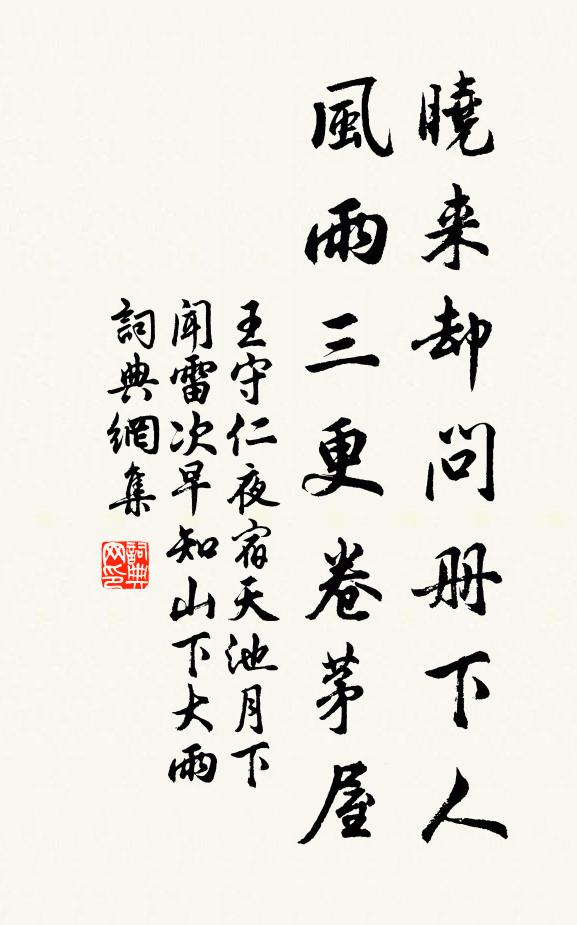 曉来却問册下人
風雨三更卷茅屋
王守仁夜宿天池月下
闻雷次早知山下大雨
詞典網集
詞典网印